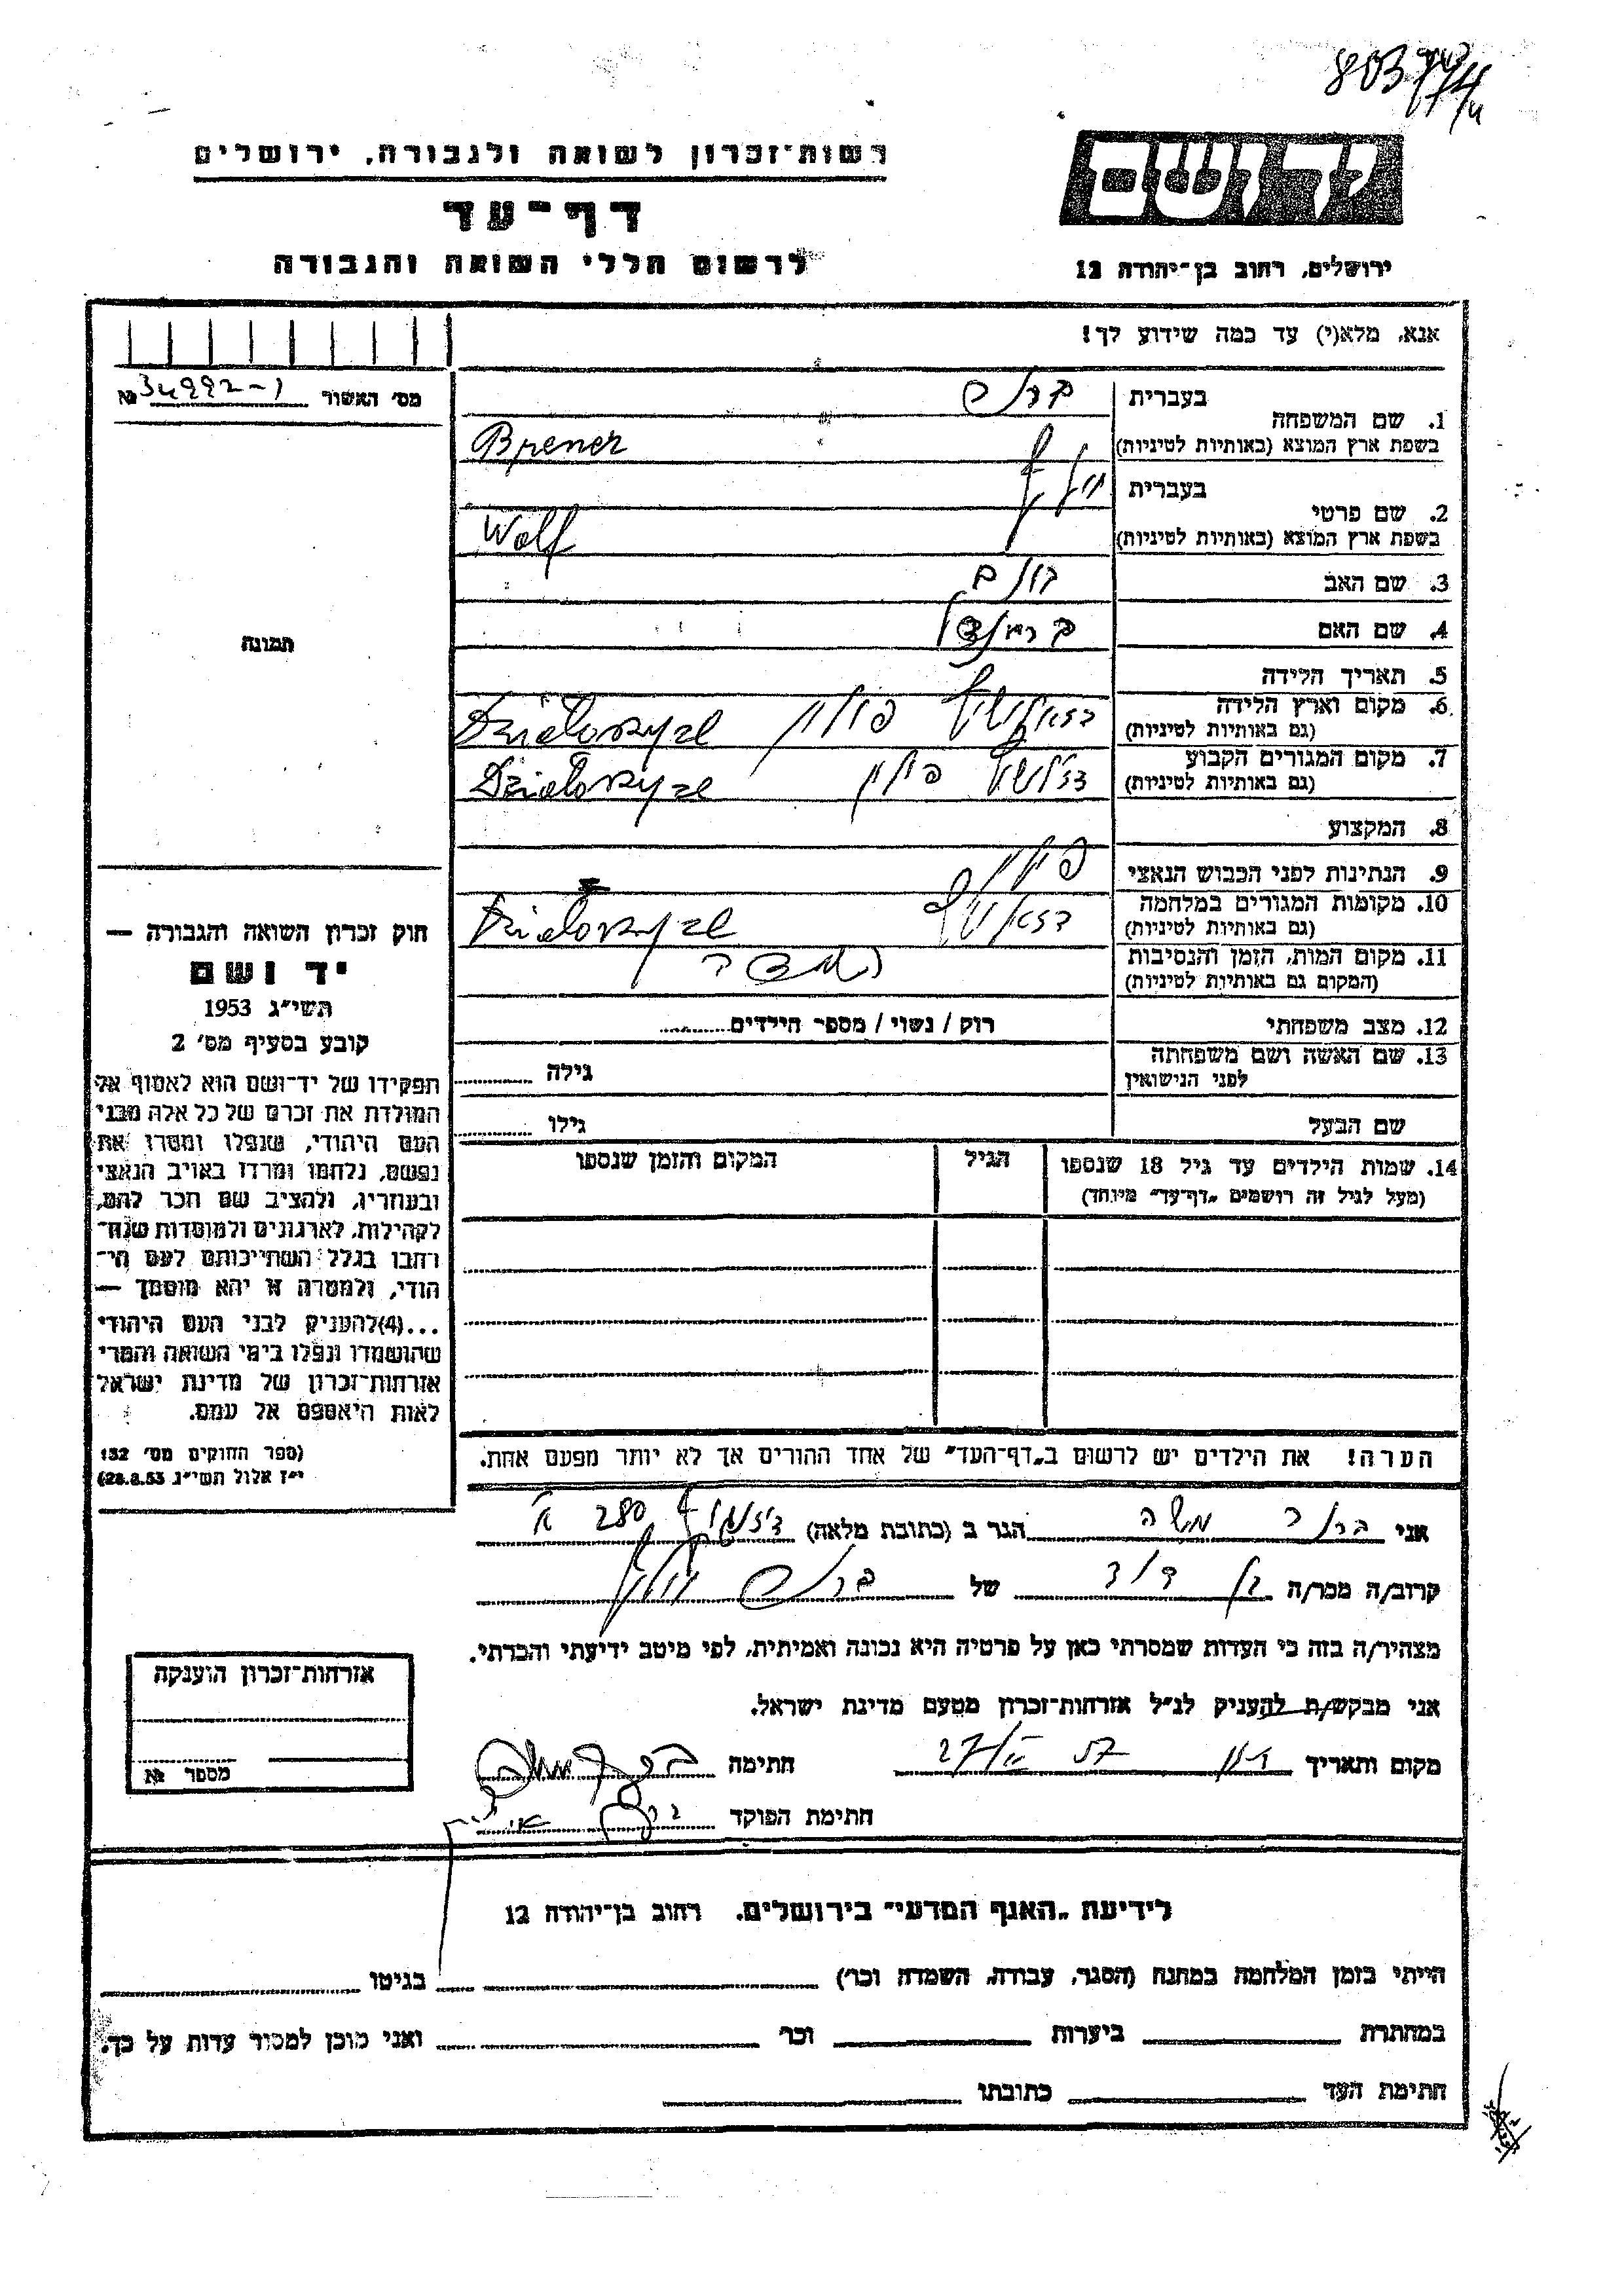 רשות־זכרון לשואה ולגבורה, ירושלים
דף־עד
לרשום חללי השואה והגבורה
ידושם
ירושלים, רחוב בן־יהודה 12
אנא, מלא(י) עד כמה שידוע לך!
מס׳ האשור 34992-1 №
1. שם המשפחה
בעברית
בשפת ארץ המוצא (באותיות לטיניות) Brener
2. שם פרטי
בעברית וולף
בשפת ארץ המוצא (באותיות לטיניות) Wolf
3. שם האב
4. שם האם
5. תאריך הלידה
6. מקום וארץ הלידה פולין Dzialoszyce
(גם באותיות לטיניות)
7. מקום המגורים הקבוע פולין Dzialoszyce
(גם באותיות לטיניות)
8. המקצוע
9. הנתינות לפני הכבוש הנאצי
10. מקומות המגורים במלחמה Dzialoszyce
(גם באותיות לטיניות)
11. מקום המות, הזמן והנסיבות
(המקום גם באותיות לטיניות)
12. מצב משפחתי רוק / נשוי / מספר הילדים
13. שם האשה ושם משפחתה
לפני הנישואין
גילה
שם הבעל גילו
14. שמות הילדים עד גיל 18 שנספו הגיל המקום והזמן שנספו
(מעל לגיל זה רושמים „דף־עד״ מיוחד)
הערה! את הילדים יש לרשום ב„דף־העד״ של אחד ההורים אך לא יותר מפעם אחת.
תמונה
חוק זכרון השואה והגבורה —
יד ושם
תשי״ג 1953
קובע בסעיף מס׳ 2
תפקידו של יד־ושם הוא לאסוף אל
המולדת את זכרם של כל אלה מבני
העם היהודי, שנפלו ומסרו את
נפשם, נלחמו ומרדו באויב הנאצי
ובעוזריו, ולהציב שם וזכר להם,
לקהילות, לארגונים ולמוסדות שנח־
רבו בגלל השתייכותם לעם הי־
הודי, ולמטרה זו יהא מוסמך —
...(4)להעניק לבני העם היהודי
שהושמדו ונפלו בימי השואה והמרי
אזרחות־זכרון של מדינת ישראל
לאות היאספם אל עמם.
(ספר החוקים מס׳ 132
י״ז אלול תשי״ג 28.8.53)
אני ברנר משה הגר ב (כתובת מלאה) 280
קרוב/ה מכר/ה בן דוד של ברנר וולף
מצהיר/ה בזה כי העדות שמסרתי כאן על פרטיה היא נכונה ואמיתית, לפי מיטב ידיעתי והכרתי.
אני מבקש/ת להעניק לנ״ל אזרחות־זכרון מטעם מדינת ישראל.
מקום ותאריך חתימה
חתימת הפוקד
אזרחות־זכרון הוענקה
מספר №
לידיעת „האגף המדעי״ בירושלים, רחוב בן־יהודה 12
הייתי בזמן המלחמה במחנה (הסגר, עבודה, השמדה וכו׳) בגיטו
במחתרת ביערות וכו׳ ואני מוכן למסור עדות על כך.
חתימת העד כתובתו